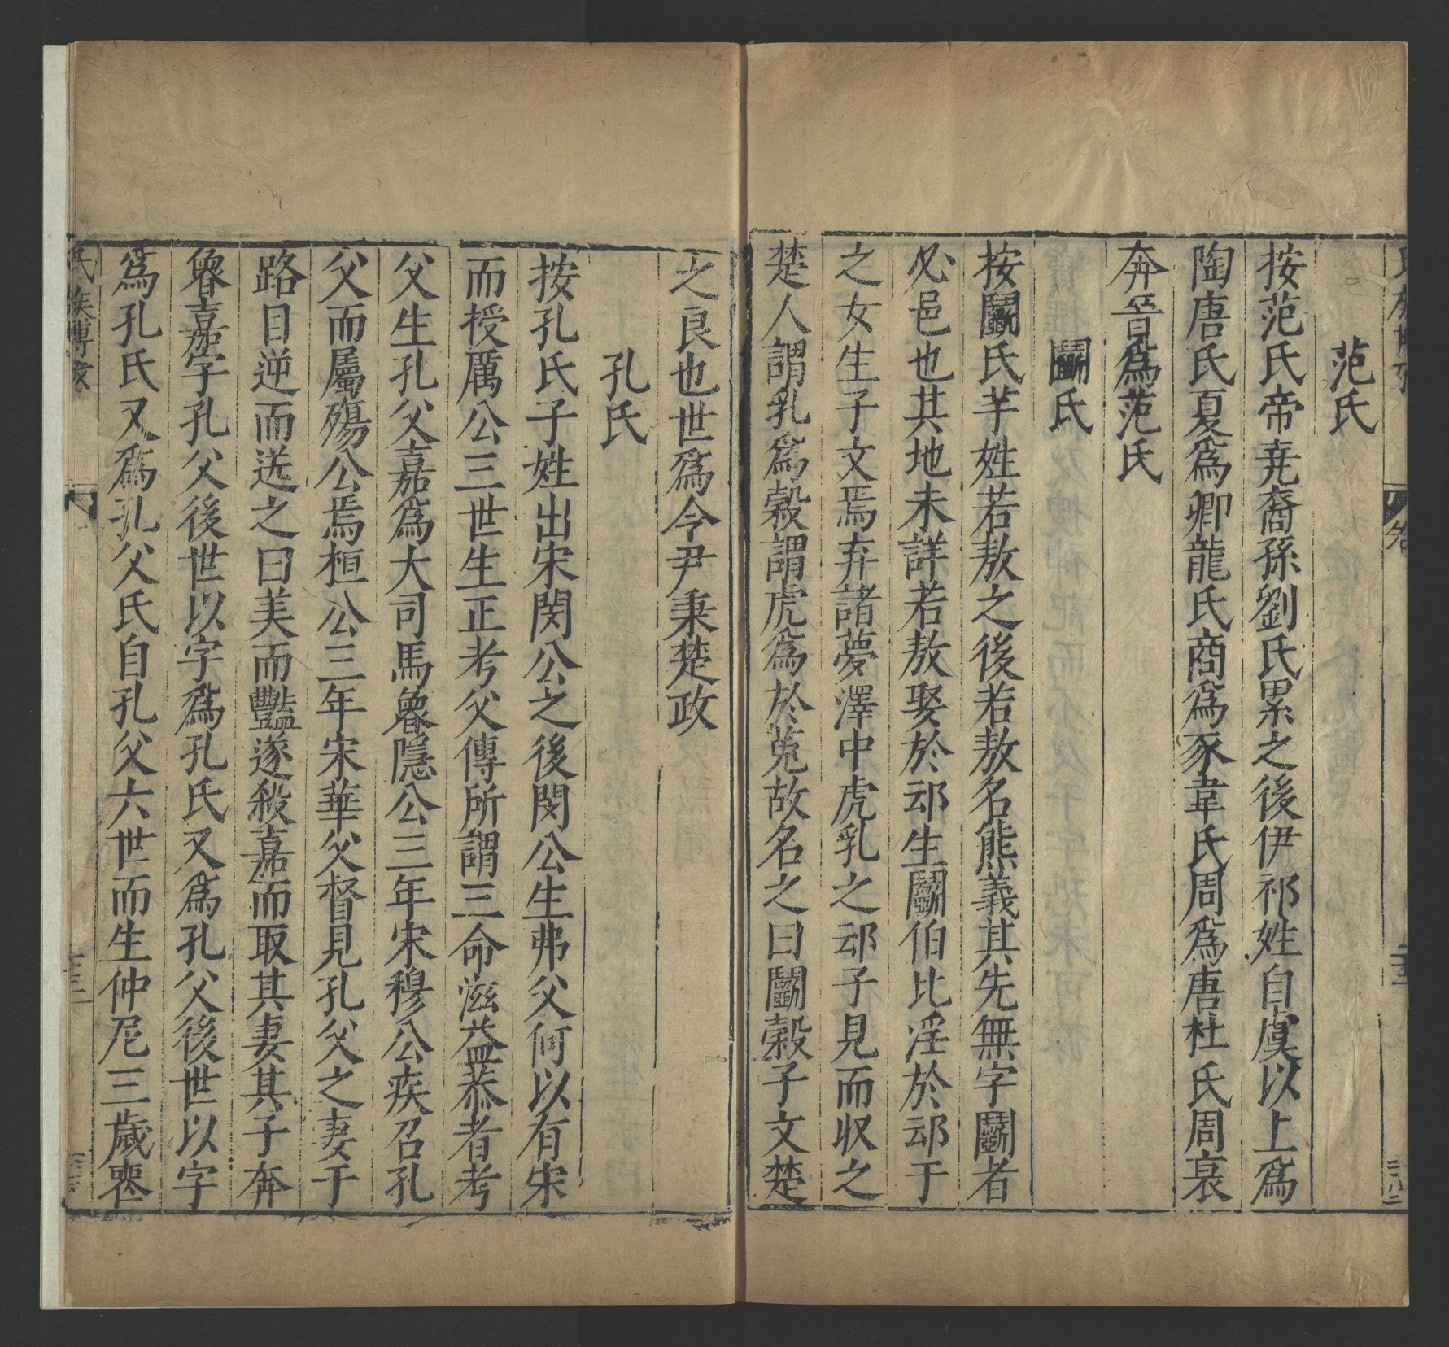 范氏
按范氏帝堯裔孫劉氏累之後伊祁姓自虞以上爲
陶唐氏夏爲御龍氏商爲豕韋氏周爲唐杜氏周衰
奔晉爲范氏
鬬氏
按鬬氏芈姓若敖之後若敖名熊義其先無字鬬者
必邑也其地未詳若敖娶於䢵生鬬伯比淫於䢵子
之女生子文焉弃諸夢澤中虎乳之䢵子見而收之
楚人謂乳爲穀謂虎爲於菟故名之曰鬬穀子文楚
之良也世爲令尹秉楚政
孔氏
按孔氏子姓出宋閔公之後閔公生弗父何以有宋
而授厲公三世生正考父傳所謂三命滋益恭者考
父生孔父嘉爲大司馬魯隱公三年宋穆公疾召孔
父而屬殤公焉桓公三年宋華父督見孔父之妻于
路目逆而送之曰美而豔遂殺嘉而取其妻其子奔
魯嘉字孔父後世以字爲孔氏又爲孔父後世以字
爲孔氏又爲孔父氏自孔父六世而生仲尼三歲喪
氏族博攷